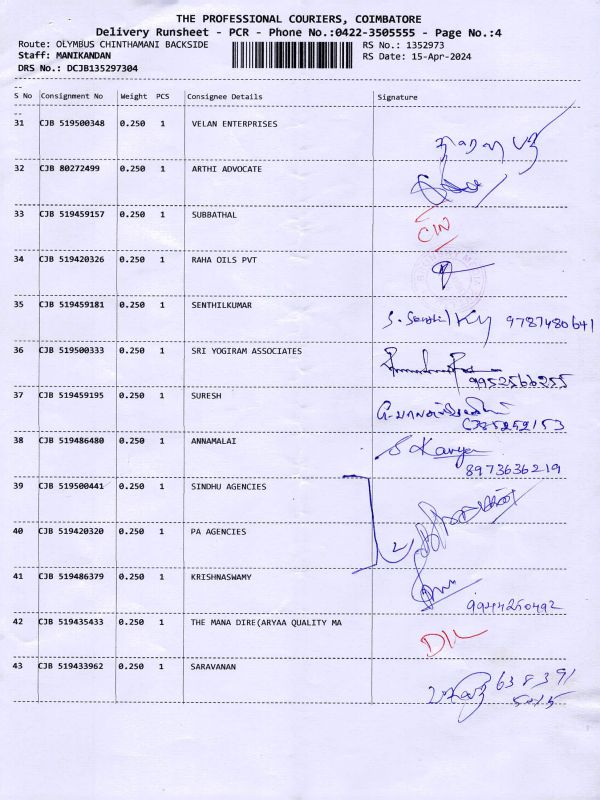 THE PROFESSIONAL COURIERS, COIMBATORE
Delivery Runsheet - PCR - Phone No.:0422-3505555 - Page No.:4
Route: OLYMBUS CHINTHAMANI BACKSIDE RS No.: 1352973
Staff: MANIKANDAN RS Date: 15-Apr-2024
DRS No.: DCJB135297304
S No Consignment No Weight PCS Consignee Details Signature
31 CJB 519500348 0.250 1 VELAN ENTERPRISES
32 CJB 80272499 0.250 1 ARTHI ADVOCATE
33 CJB 519459157 0.250 1 SUBBATHAL
CIN
34 CJB 519420326 0.250 1 RAHA OILS PVT
35 CJB 519459181 0.250 1 SENTHILKUMAR
9787480641
36 CJB 519500333 0.250 1 SRI YOGIRAM ASSOCIATES
9952566255
37 CJB 519459195 0.250 1 SURESH
38 CJB 519486480 0.250 1 ANNAMALAI
S Kavya
8973636219
39 CJB 519500441 0.250 1 SINDHU AGENCIES
40 CJB 519420320 0.250 1 PA AGENCIES
2
41 CJB 519486379 0.250 1 KRISHNASWAMY
9944250492
42 CJB 519435433 0.250 1 THE MANA DIRE(ARYAA QUALITY MA
D/L
43 CJB 519433962 0.250 1 SARAVANAN
638391
5015